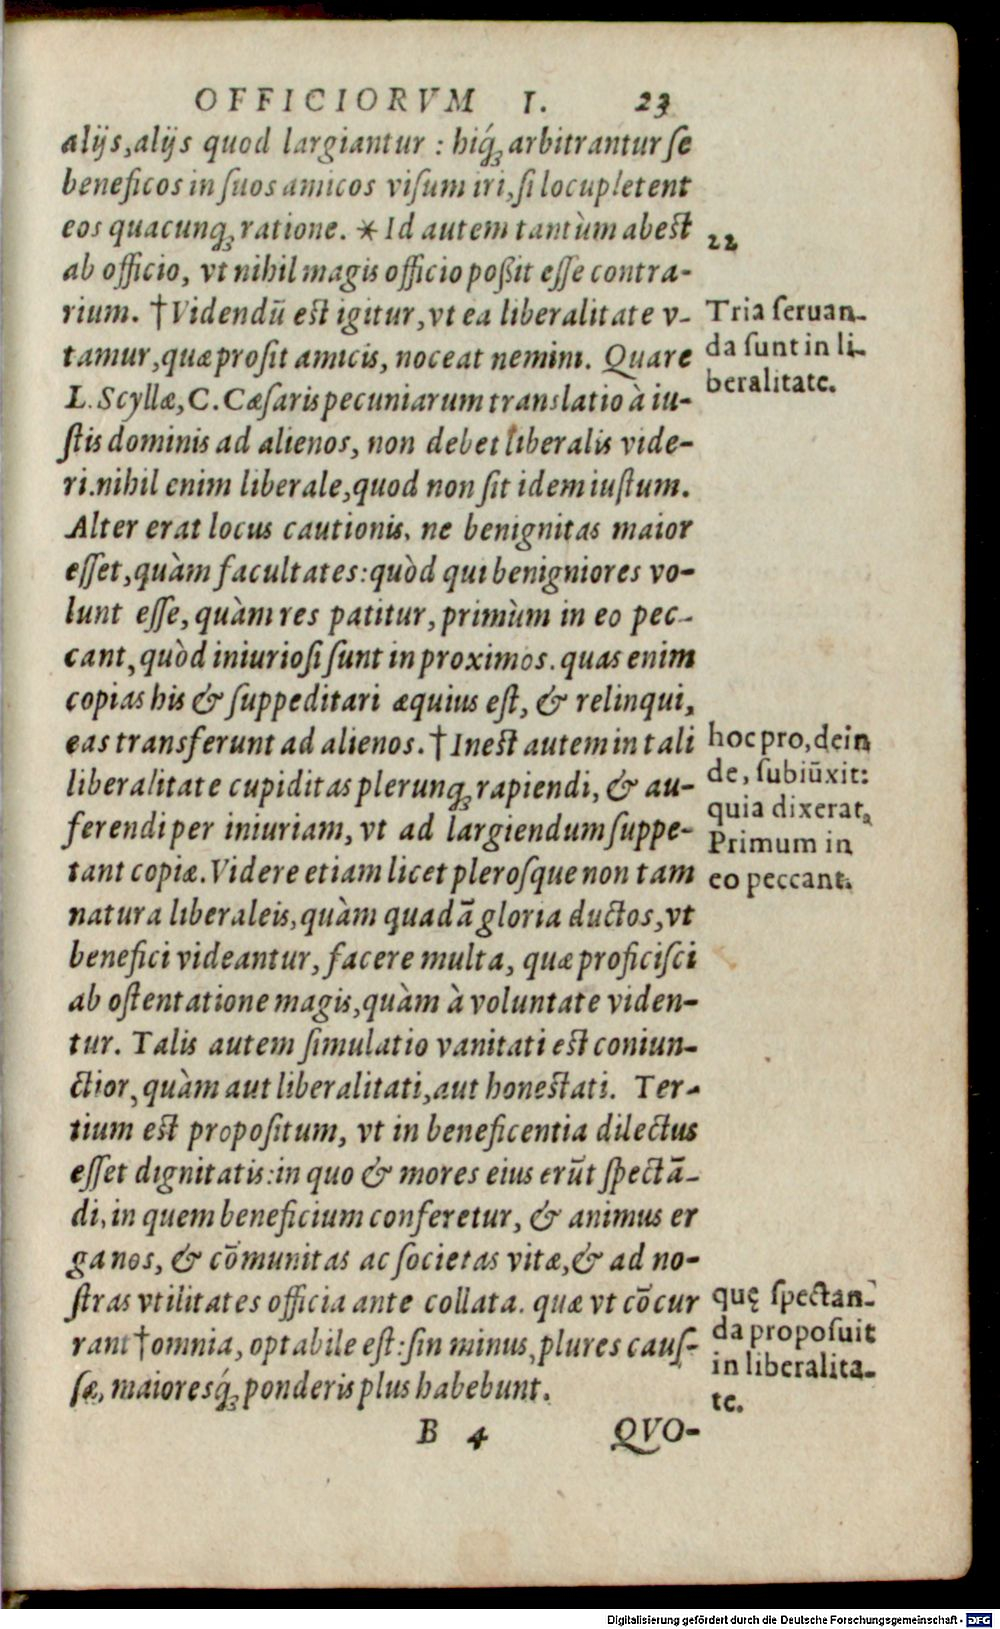 OFFICIORVM I. 23
alijs, alijs quod largiantur : hiq́ꝫ arbitrantur se
beneficos in suos amicos visum iri, si locupletent
eos quacunqꝫ ratione. * Id autem tantùm abest
ab officio, vt nihil magis officio poßit esse contra-
rium. † Videndū est igitur, vt ea liberalitate v-
tamur, quæ prosit amicis, noceat nemini. Quare
L. Scyllæ, C. Cæsaris pecuniarum translatio à iu-
stis dominis ad alienos, non debet liberalis vide-
ri. nihil enim liberale, quod non sit idem iustum.
Alter erat locus cautionis, ne benignitas maior
esset, quàm facultates: quòd qui benigniores vo-
lunt esse, quàm res patitur, primùm in eo pec-
cant, quòd iniuriosi sunt in proximos. quas enim
copias his & suppeditari æquius est, & relinqui,
eas transferunt ad alienos. † Inest autem in tali
liberalitate cupiditas plerunqꝫ rapiendi, & au-
ferendi per iniuriam, vt ad largiendum suppe-
tant copiæ. Videre etiam licet plerosque non tam
natura liberaleis, quàm quadā gloria ductos, vt
benefici videantur, facere multa, quæ proficisci
ab ostentatione magis, quàm à voluntate viden-
tur. Talis autem simulatio vanitati est coniun-
ctior, quàm aut liberalitati, aut honestati. Ter-
tium est propositum, vt in beneficentia dilectus
esset dignitatis: in quo & mores eius erūt spectā-
di, in quem beneficium conferetur, & animus er
ga nos, & cōmunitas ac societas vitæ, & ad no-
stras vtilitates officia ante collata. quæ vt cōcur
rant † omnia, optabile est: sin minus, plures caus-
sæ, maioresq́ꝫ ponderis plus habebunt.
B 4 QVO-
22
Tria seruan-
da sunt in li-
beralitate.
hoc pro, dein
de, subiūxit:
quia dixerat,
Primum in
eo peccant.
quę spectan-
da proposuit
in liberalita-
te.
Digitalisierung gefördert durch die Deutsche Forschungsgemeinschaft - DFG